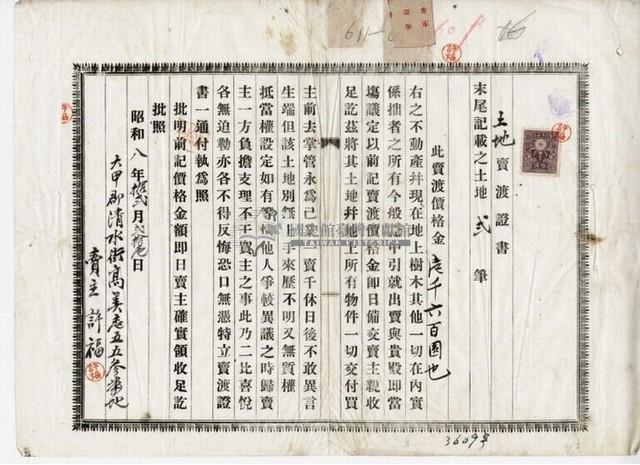 土地賣渡證書
末尾記載之土地 弐 筆
此賣渡價格金 六百圓也
右之不動產幷現在地上樹木其他一切在內實
係拙者之所有今般 中引就出賣與貴殿卽當
塲議定以前記賣渡價格金卽日備交賣主親收
足訖茲將其土地幷地上所有物件一切交付買
主前去掌管永為己 賣千休日後不敢異言
生端但該土地別無 來歷不明又無質權
抵當權設定如有等 他人爭較異議之時歸賣
主一方負擔支理不干買主之事此乃二比喜悅
各無迫勒亦各不得反悔恐口無憑特立賣渡證
書一通付執爲照
批明前記價格金額卽日賣主確實領收足訖
批照
昭和八年 月 日
大甲郡清水街高美 五五 番地
賣主 許福
許福
國史館臺灣文獻館
TAIWAN HISTORICA
3609号